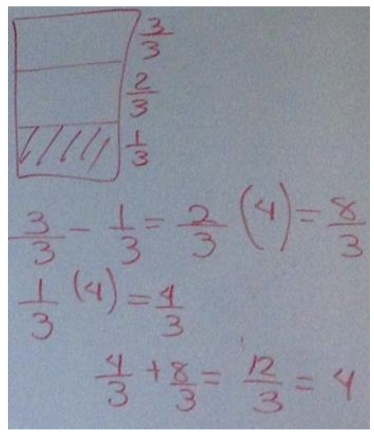 3/3
2/3
1/3
3/3 - 1/3 = 2/3 (4) = 8/3
1/3 (4) = 4/3
4/3 + 8/3 = 12/3 = 4